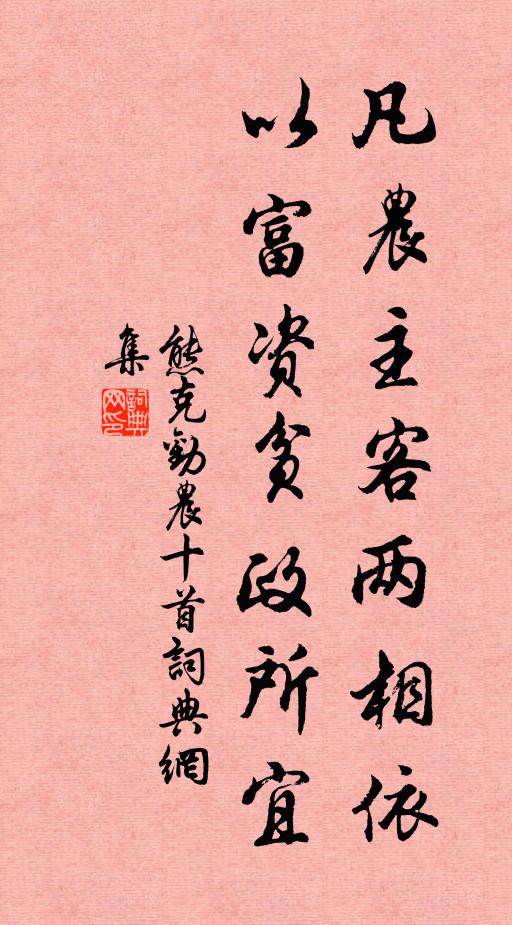 凡農主客两相依
以富资贫政所宜
熊克勸農十首詞典網
集
詞典
网印